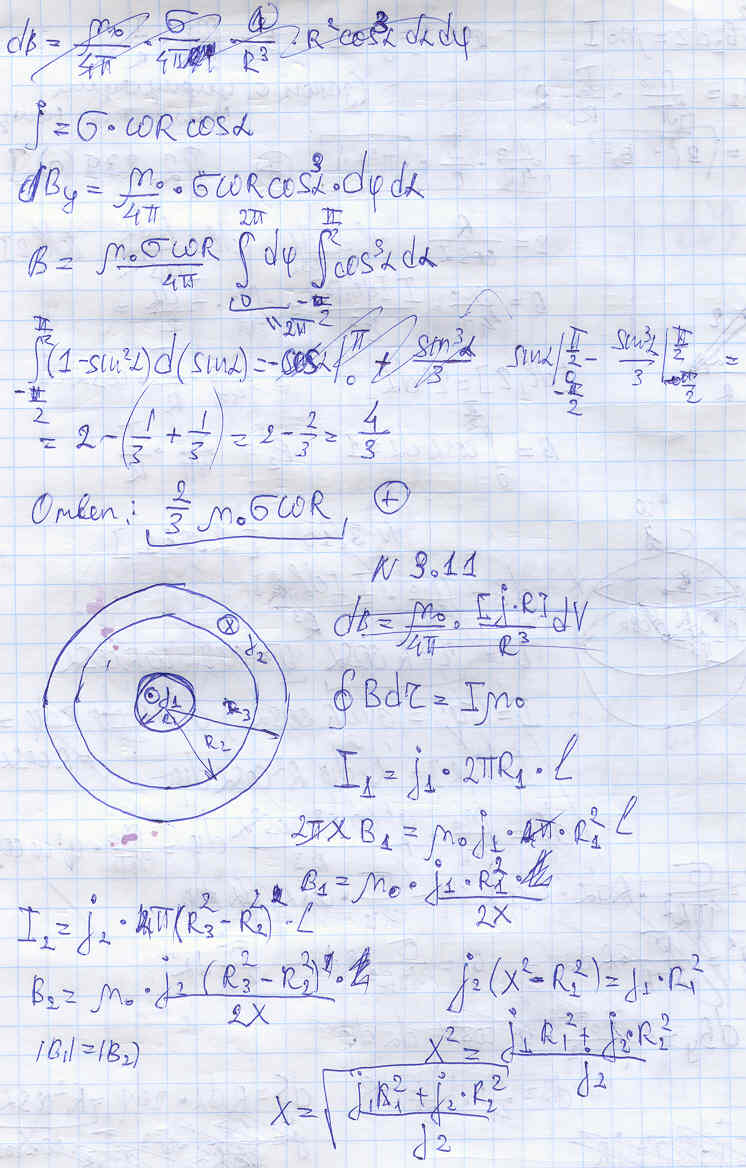 dB = μ₀/4π · σ/4π · ω/R³ · R² cos³α dα dφ
j = σ · ωR cosα
dBy = μ₀/4π · σωR cos³α · dφ dα
B = μ₀σωR/4π ∫₀^2π dφ ∫_-π/2^π/2 cos³α dα
" 2π
∫_-π/2^π/2 (1-sin²α) d(sinα) = -cosα |₀^π + sin³α/3 sinα |_-π/2^π/2 - sin³α/3 |_-π/2^π/2 =
= 2 - (1/3 + 1/3) = 2 - 2/3 = 4/3
Ответ: 2/3 μ₀σωR +
N 3.11
dB = μ₀/4π · [j·R]/R³ dV
x j₂
j₁ R₃
R₂
∮Bdr = Iμ₀
I₁ = j₁ · 2πR₁ · l
2πx B₁ = μ₀ j₁ · π · R₁² l
B₁ = μ₀ · j₁ · R₁²/2x
I₂ = j₂ · π(R₃² - R₂²) · l
B₂ = μ₀ · j₂ (R₃² - R₂²)/2x
j₂(x² - R₂²) = j₁ · R₁²
|B₁| = |B₂|
x² = j₁R₁² + j₂·R₂²/j₂
x = √(j₁R₁² + j₂·R₂²/j₂)